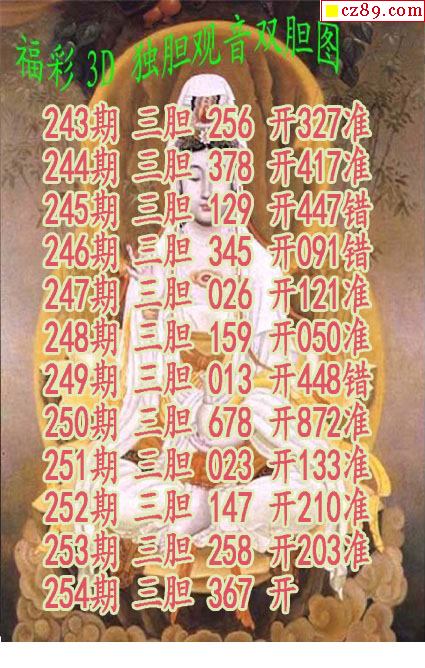 cz89.com
福彩 3D 独胆观音双胆图
243期 三胆 256 开327准
244期 三胆 378 开417准
245期 三胆 129 开447错
246期 三胆 345 开091错
247期 三胆 026 开121准
248期 三胆 159 开050准
249期 三胆 013 开448错
250期 三胆 678 开872准
251期 三胆 023 开133准
252期 三胆 147 开210准
253期 三胆 258 开203准
254期 三胆 367 开